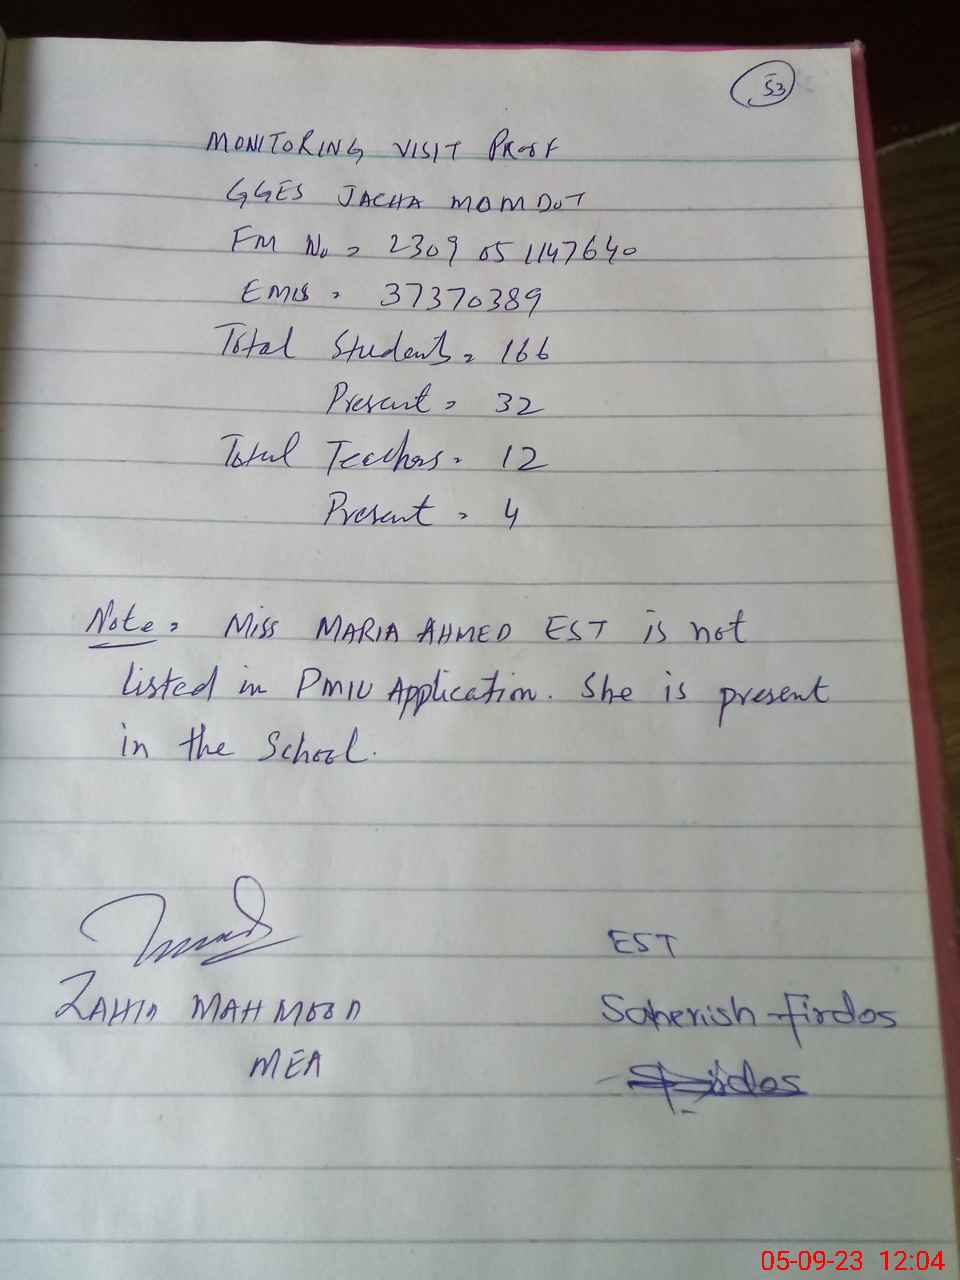 53
MONITORING VISIT PROOF
GGES JACHA MOMDOT
FM No = 2309 05 1147640
EMIS = 37370389
Total Students = 166
Present = 32
Total Teachers = 12
Present = 4
Note = Miss MARIA AHMED EST is not
listed in PMIU Application. She is present
in the School.
EST
ZAHID MAHMOOD
Saherish Firdos
MEA
05-09-23 12:04